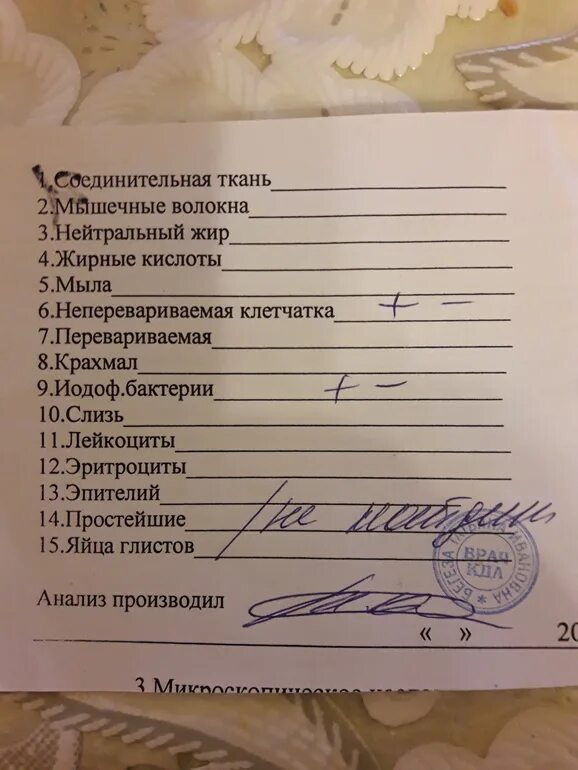 1.Соединительная ткань
2.Мышечные волокна
3.Нейтральный жир
4.Жирные кислоты
5.Мыла
6.Неперевариваемая клетчатка + –
7.Перевариваемая
8.Крахмал
9.Иодоф.бактерии + –
10.Слизь
11.Лейкоциты
12.Эритроциты
13.Эпителий
14.Простейшие не найдены
15.Яйца глистов
ВРАЧ
КДЛ
БЕГЕЗА ИВАНОВНА
Анализ производил
« » 20
3.Микроскопическое